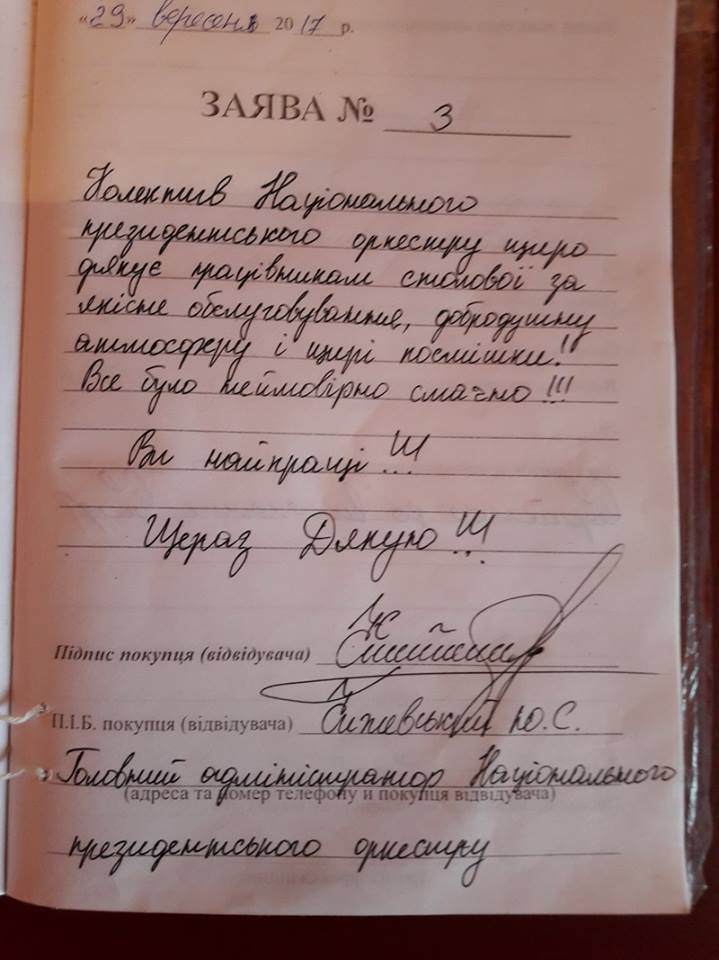 «29» вересня 2017 р.
ЗАЯВА № 3
Колектив Національного
президентського оркестру щиро
дякує працівникам столової за
якісне обслуговування, добродушну
атмосферу і щирі посмішки!
Все було неймовірно смачно!!!
Ви найкращі!!!
Щераз Дякую!!!
Підпис покупця (відвідувача)
П.І.Б. покупця (відвідувача) Чижевський Ю.С.
Головний адміністратор Національного
(адреса та номер телефону и покупця відвідувача)
президентського оркестру